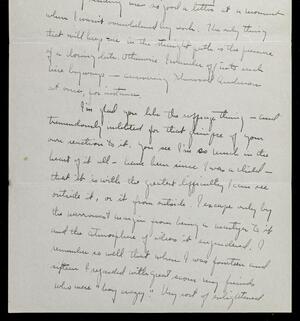 so good a letter at a moment
when I wasn't overwhelmed by work. The only thing
that will keep me in the straight path is the pressure
of a closing date. Otherwise I wander off into such
nice byways — answering Sherwood Anderson
at once, for instance.
I'm glad you like the suffrage thing — and
tremendously indebted for that glimpse of your
own reaction to it. You see I'm so much in the
heart of it all — have been since I was a child —
that it is with the greatest difficulty I can see
outside it, or it from outside. I escape only by
the narrowest margin from being a martyr to it
and the atmosphere of ideas it engendered. I
remember so well that when I was fourteen and
fifteen I regarded with great scorn my friends
who were "boy crazy". Very sort of enlightened